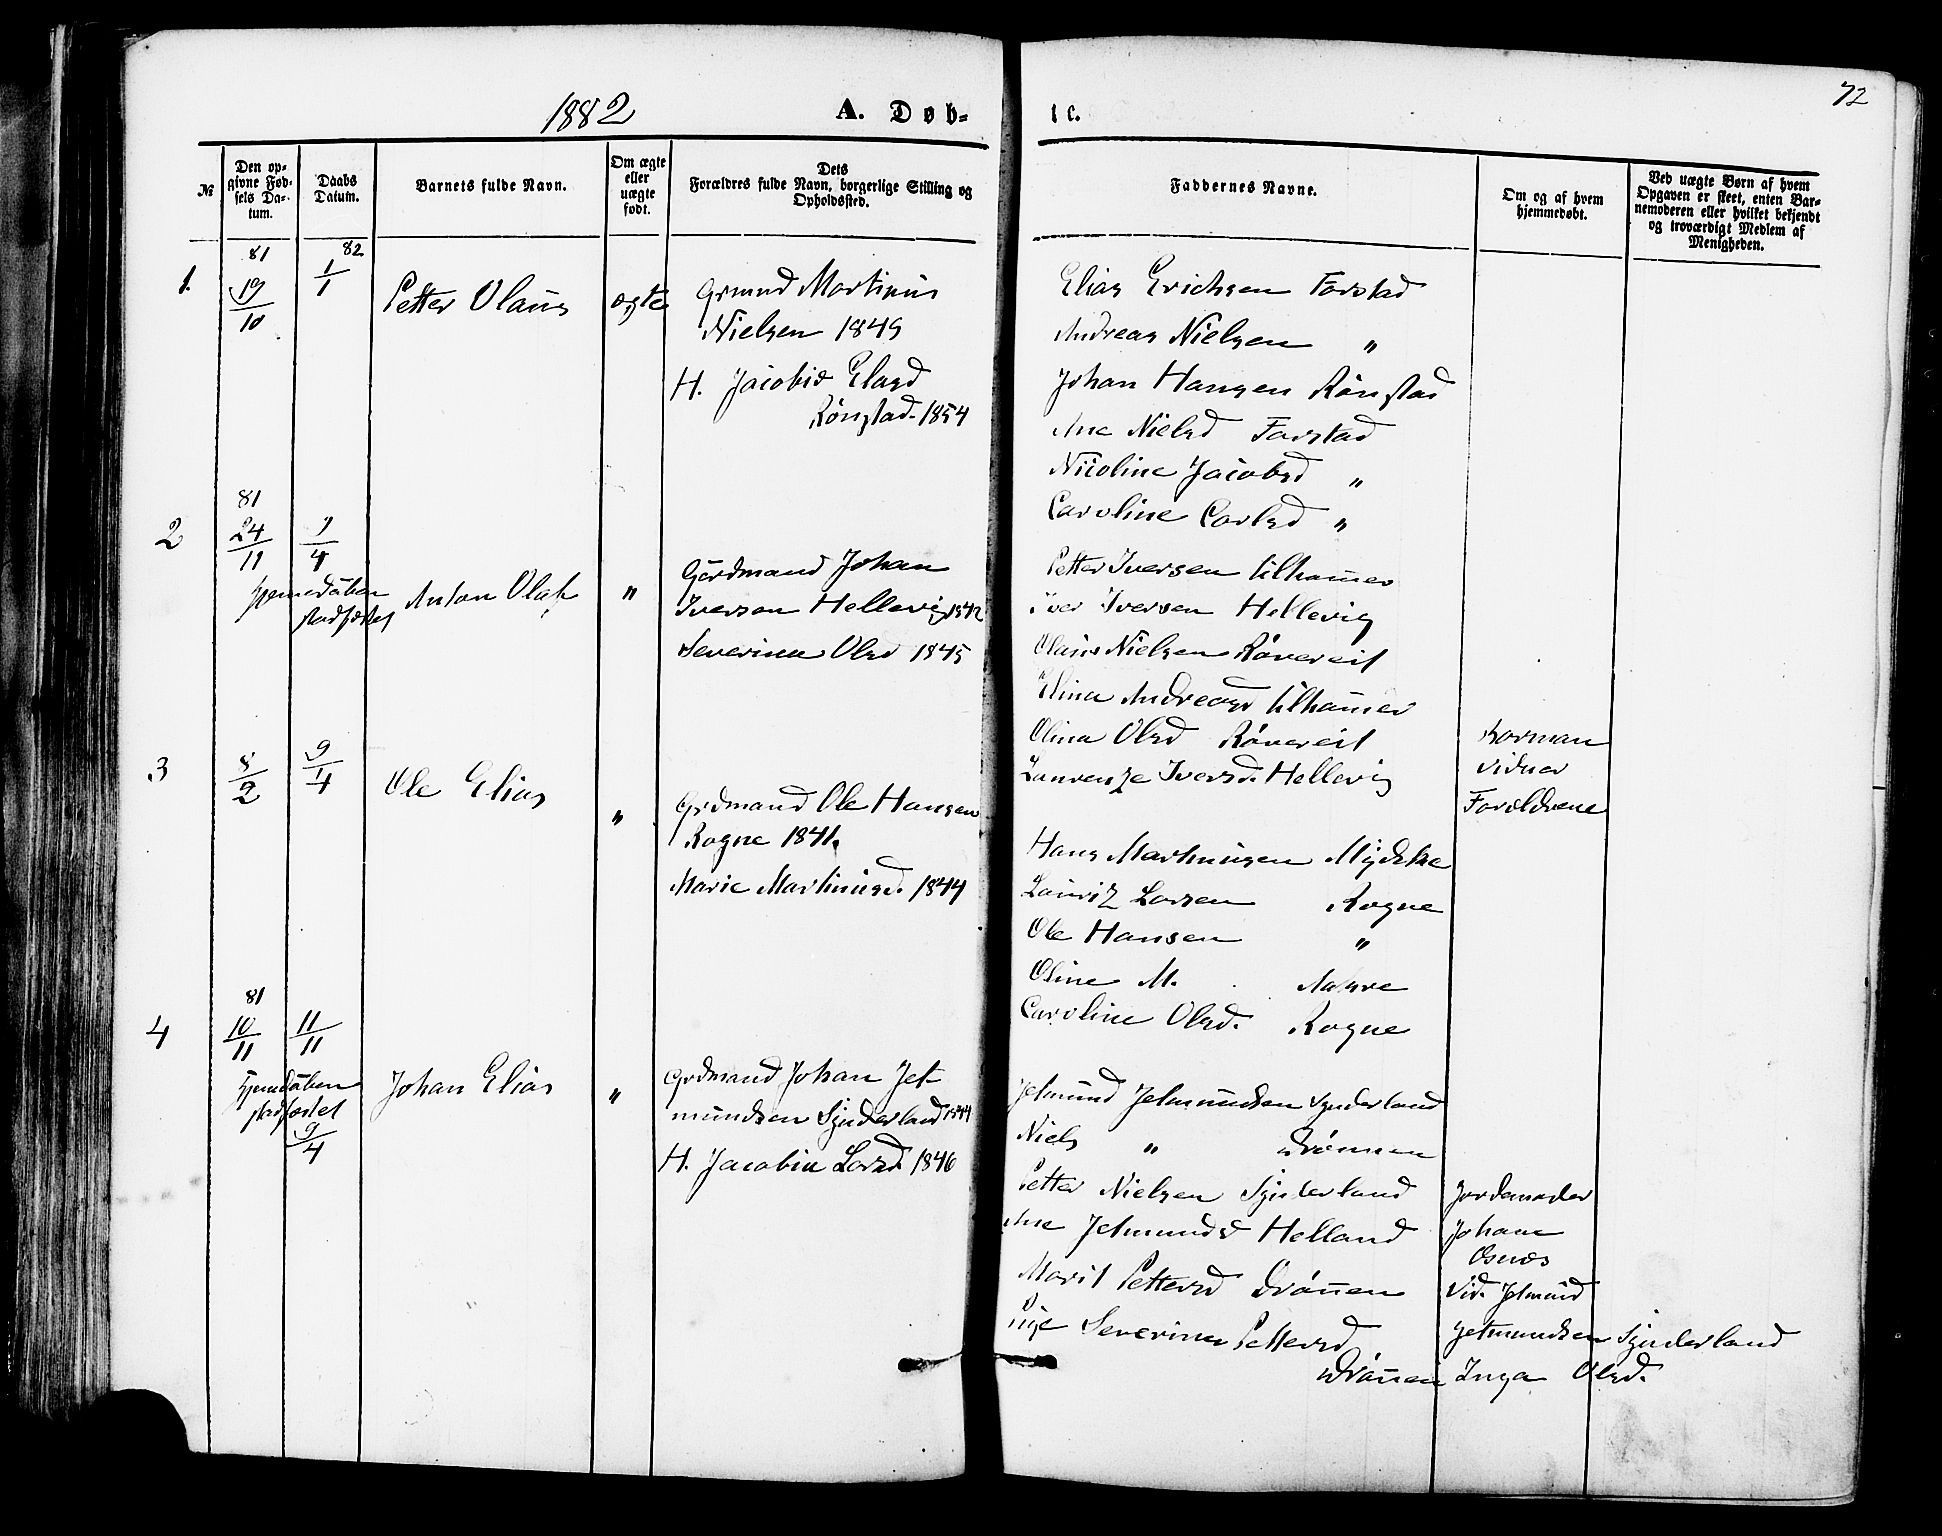 72
1882 A. Døb- te.
№
Den opgivne Fødsels Datum.
Daabs Datum.
Barnets fulde Navn.
Om ægte eller uægte født.
Dets Forældres fulde Navn, borgerlige Stilling og Opholdssted.
Faddernes Navne.
Om og af hvem hjemmedøbt.
Ved uægte Børn af hvem Opgaven er skeet, enten Barnemoderen eller hvilket bekjendt og troværdigt Medlem af Menigheden.
1.
81
19/10
82
1/1
Petter Olaus
ægte
Grmnd Martinus
Nielsen 1849
H. Jacobie Elasd
Rønstad. 1854
Elias Erichsen Farstad
Andreas Nielsen "
Johan Hansen Rønstad
Ane Nielsd Farstad
Nicoline Jacobsd "
Caroline Carlsd "
2
81
24/11
9/4
Hjemedåben
stadfæstet
Anton Olaf
"
Gårdmand Johan
Iversen Hellevig 1842
Severine Olsd 1845
Petter Iversen Lilhamer
Iver Iversen Hellevig
Olaus Nielsen Røvereit
Elina Andreasd Lilhamer
Olina Olsd Røvereit
Laurenze Iversd. Hellevig
vidner
Forældrene
3
8/2
9/4
Ole Elias
"
Grdmand Ole Hansen
Rogne 1841.
Marie Martinusd. 1844
Hans Martinusen Myklebø
Lauriz Larsen Rogne
Ole Hansen "
Oline M.
Caroline Olsd. Rogne
4
81
10/11
11/11
Hjemedåben
stadfæstet
9/4
Johan Elias
"
Grdmand Johan Jet-
mundsen Synderland 1844
H. Jacobine Larsd. 1846
Jetmund Jetmundsen Synderland
Niels " Drønnen
Petter Nielsen Synderland
Ane Jetmundsd Helland
Marit Pettersd Drønnen
Pige Severine Pettersd
Drønnen
Jordemoder
Johane
Osnæs
Vid. Jetmund
Jetmundsen Synderland
Inga Olsd.